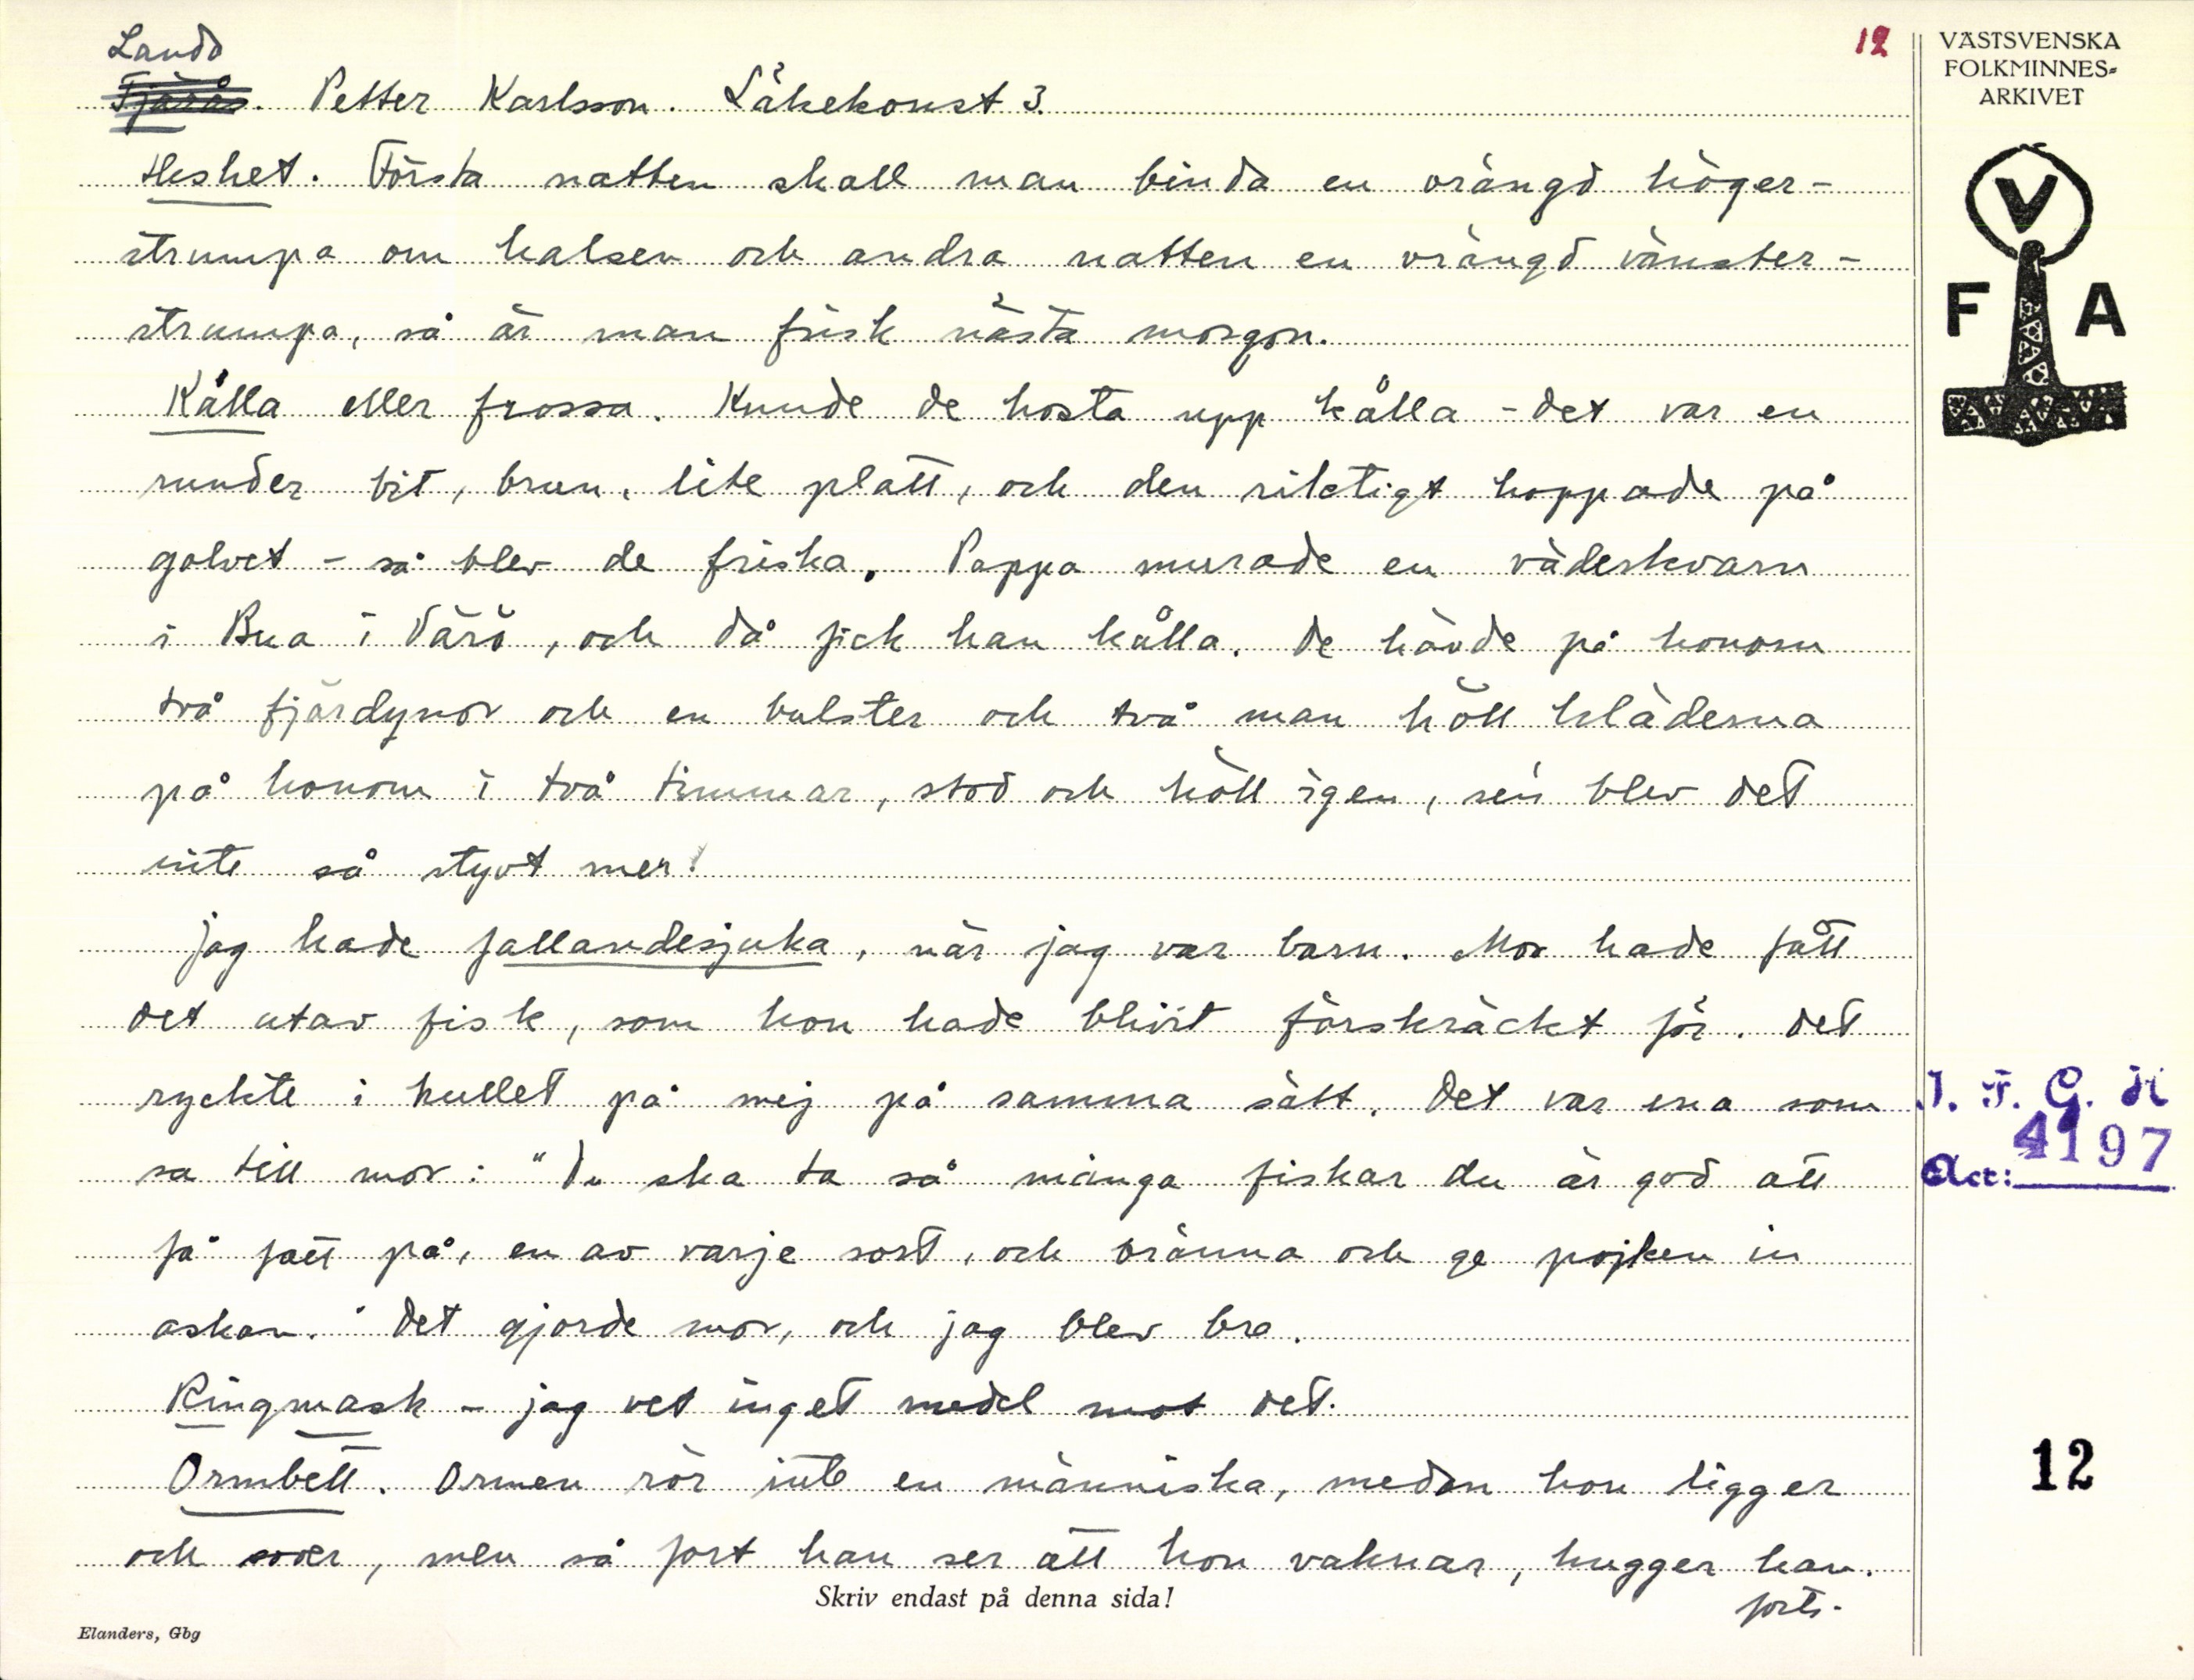 Landa
Fjärås. Petter Karlsson. Läkekonst 3.
12
VÄSTSVENSKA
FOLKMINNES-
ARKIVET
V
F A
Heshet. Första natten skall man binda en vrängd höger-
strumpa om halsen och andra natten en vrängd vänster-
strumpa, så är man frisk nästa morgon.
Kålla eller frossa. Kunde de hosta upp kålla - det var en
runder bit, brun, lite platt, och den riktigt hoppade på
golvet - så blev de friska. Pappa murade en väderkvarn
i Bua i Värö, och då fick han kålla. De hävde på honom
två fjärdynor och en bulster och två man höll kläderna
på honom i två timmar, stod och höll igen, sen blev det
inte så styvt mer!
Jag hade fallandesjuka, när jag var barn. Mor hade fått
det utav fisk, som hon hade blivit förskräckt för. Det
ryckte i hullet på mej på samma sätt. Det var ena som
sa till mor: "Du ska ta så många fiskar du är god att
få fatt på, en av varje sort, och bränna och ge pojken in
askan." Det gjorde mor, och jag blev bra.
Ringmask - jag vet inget medel mot det.
Ormbett. Ormen rör inte en människa, medan hon ligger
och sover, men så fort han ser att hon vaknar, hugger han.
forts.
I. F. G. H
Acc: 4197
12
Skriv endast på denna sida!
Elanders, Gbg